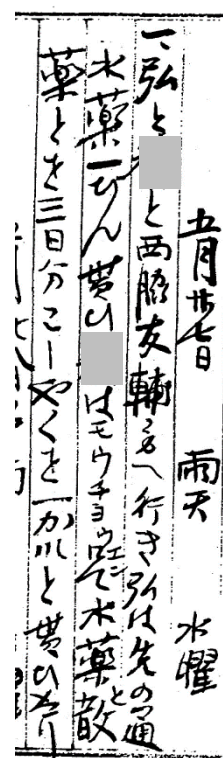 五月廿七日 雨天 水曜
一、弘と と西脇友輔さまへ行き弘は先の通
水薬一びん貰ひ はモウチョウエンで水薬と散
薬とを三日分こーやくを一かいと貰ひ